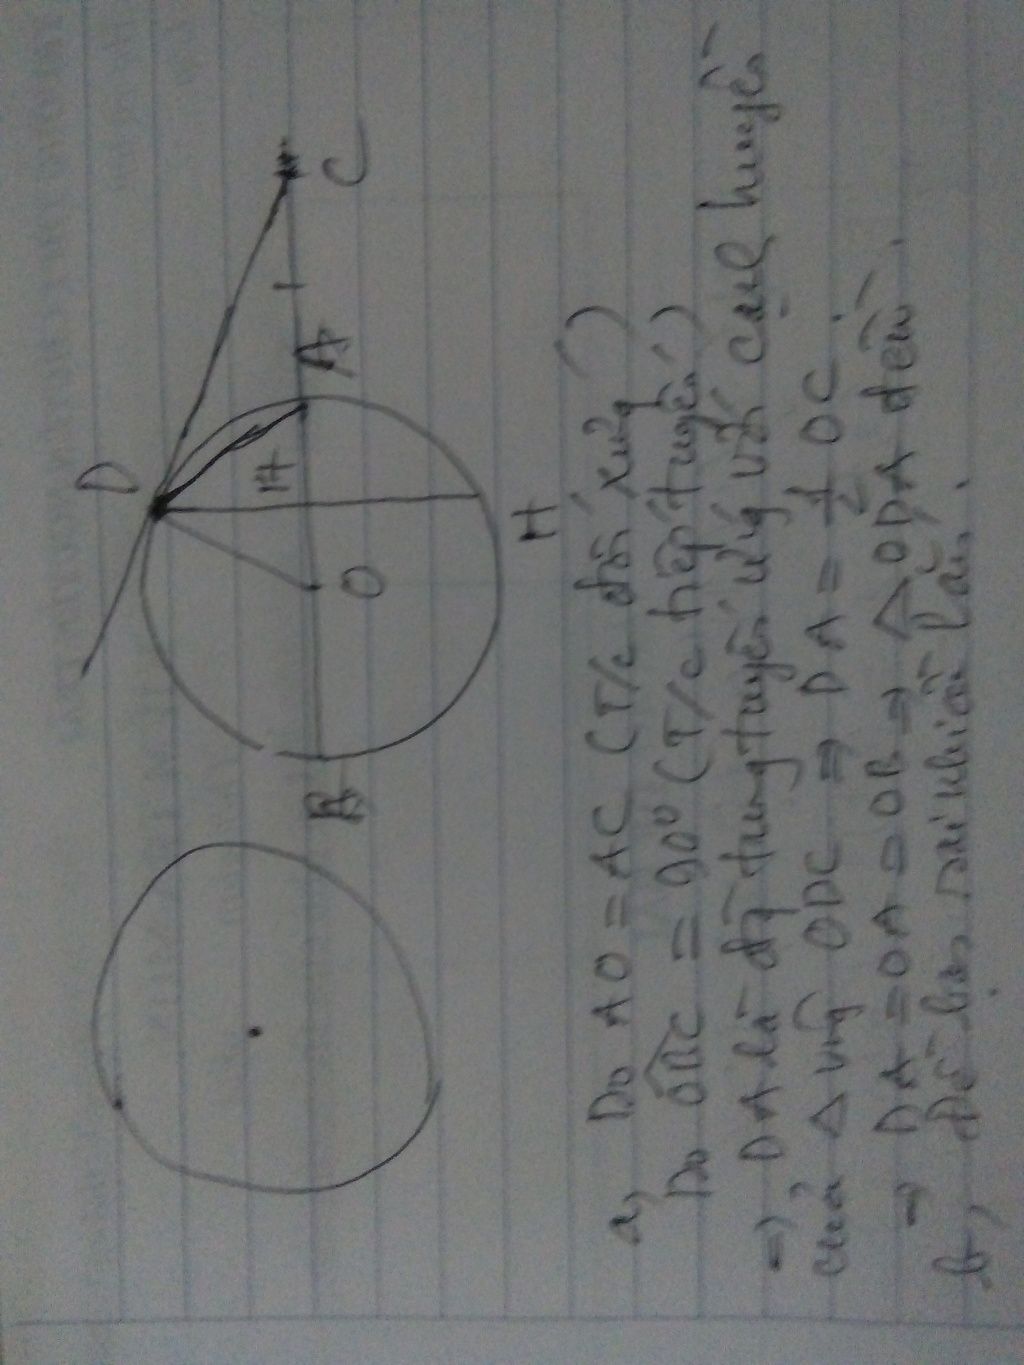 D
C
A
H
O
B
H
a, Do AO = AC (T/c đối xứng)
Do ODC = 90° (T/c tiếp tuyến)
=> DA là đg trung tuyến ứng với cạnh huyền
của Δ vug ODC => DA = 1/2 OC.
=> DA = OA = OB => Δ ODA đều.
b, Đề bài